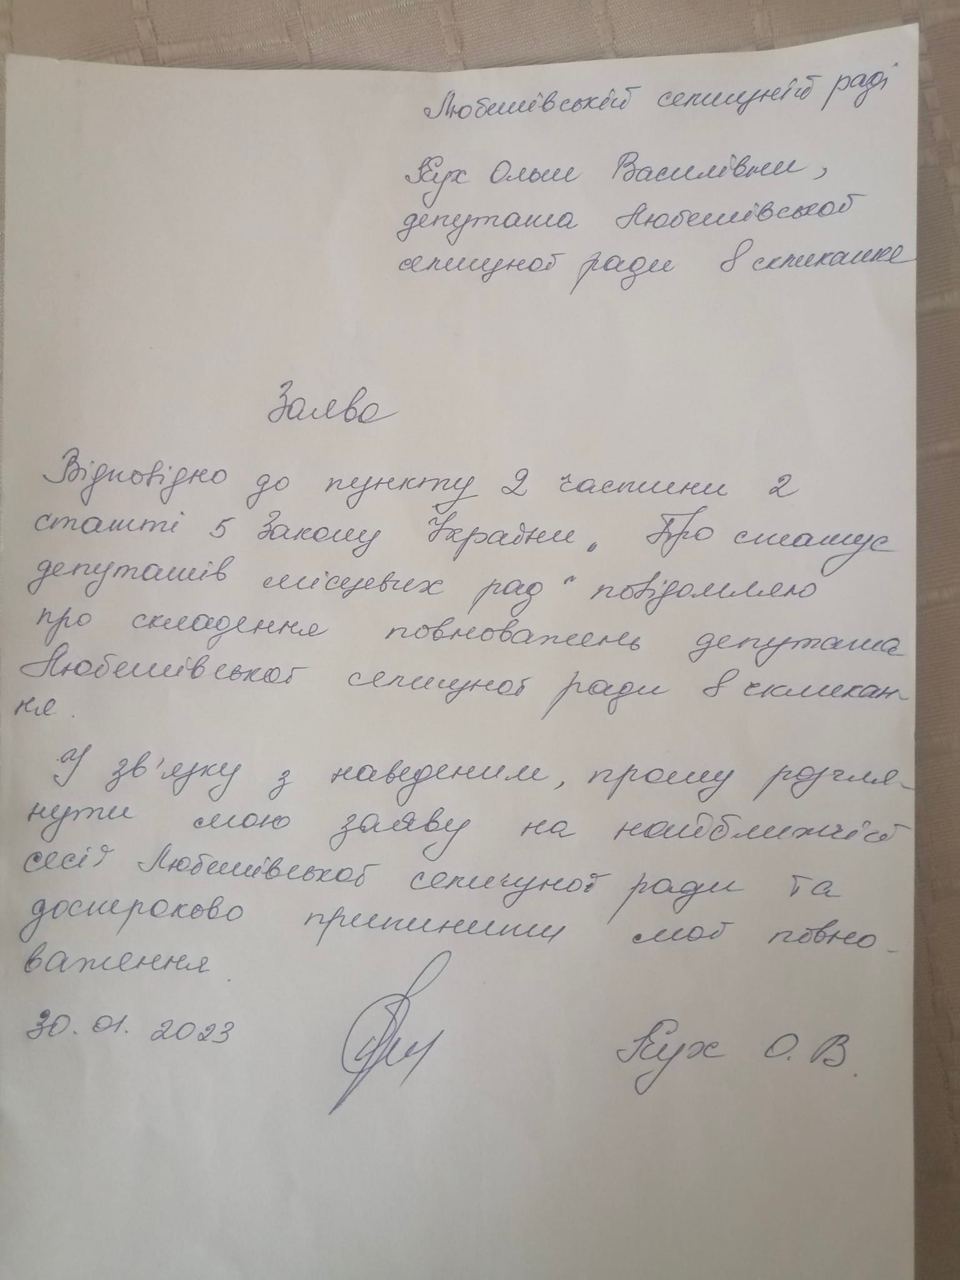 Любешівській селищній раді
Кух Ольги Василівни,
депутата Любешівської
селищної ради 8 скликання
Заява
Відповідно до пункту 2 частини 2
статті 5 Закону України „Про статус
депутатів місцевих рад“ повідомляю
про складення повноважень депутата
Любешівської селищної ради 8 скликан-
ня.
У зв'язку з наведеним, прошу розгля-
нути мою заяву на найближчій
сесії Любешівської селищної ради та
достроково припинити мої повно-
важення.
30.01.2023
Кух О.В.